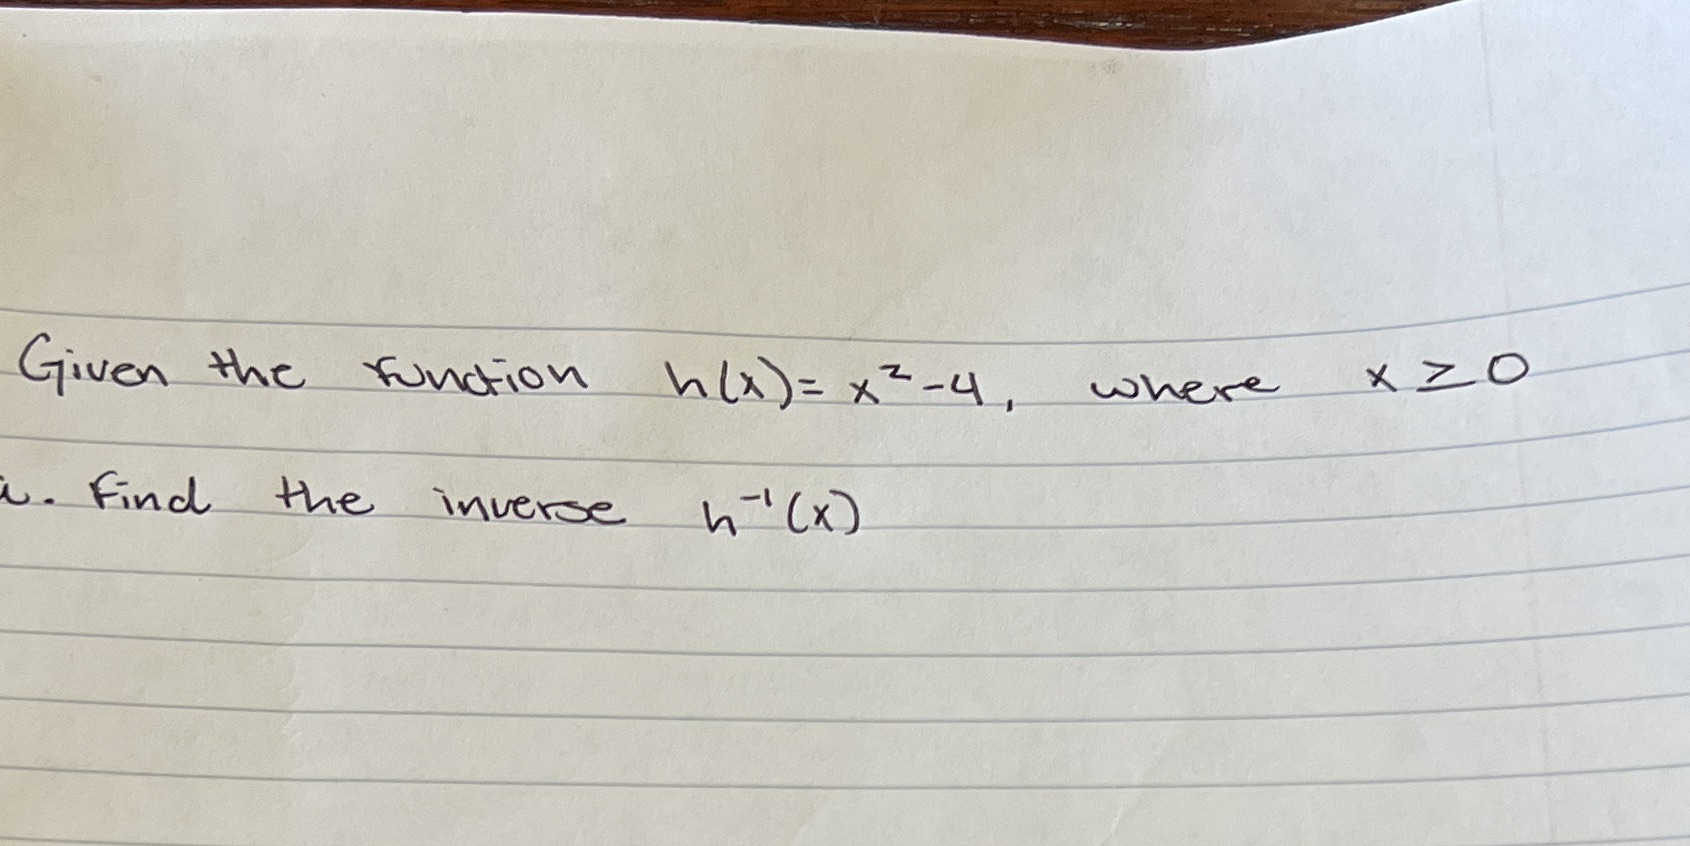 Given the function h(x) = x² - 4, where x ≥ 0
i. Find the inverse h⁻¹(x)